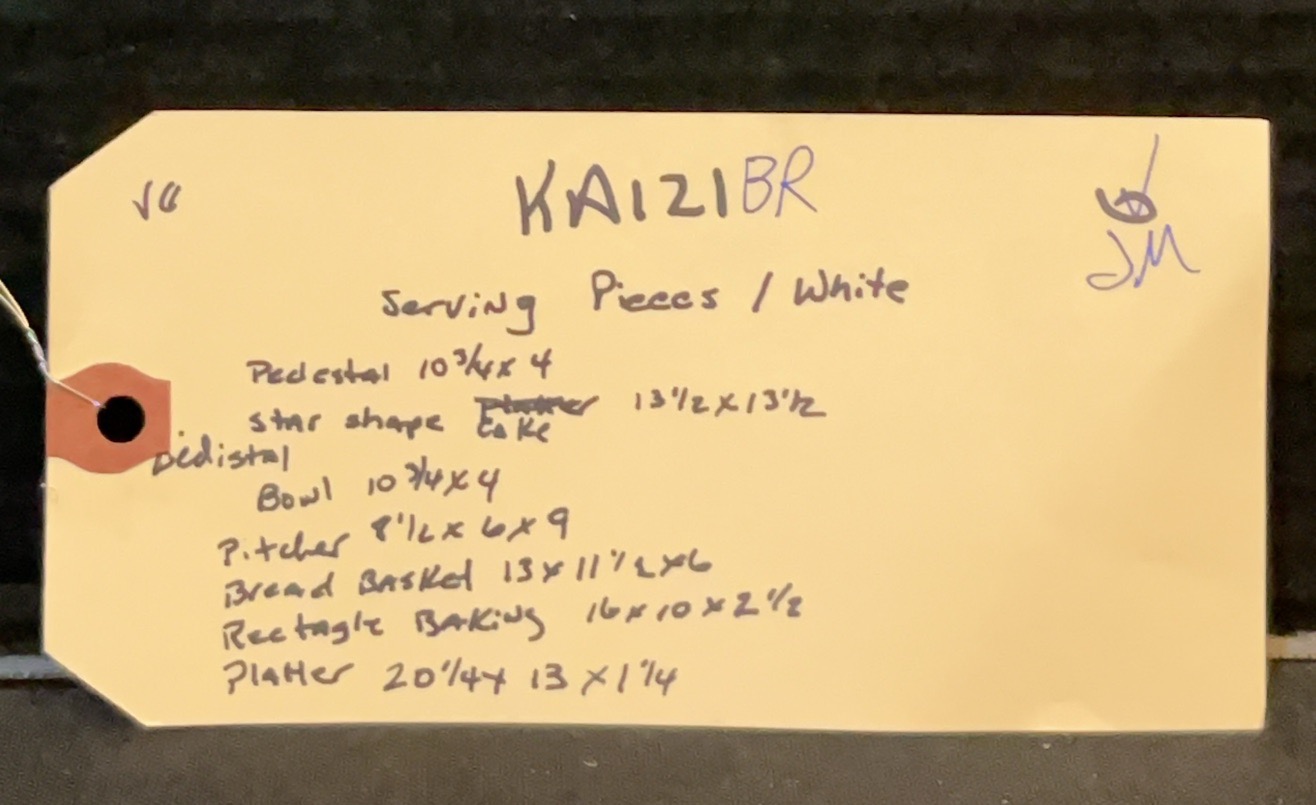 KA121BR
JM
Serving Pieces / White
Pedestal 10 3/4 x 4
Star shape Cake 13 1/2 x 13 1/2
pedistal
Bowl 10 3/4 x 4
Pitcher 8 1/2 x 6 x 9
Bread Basket 13 x 11 1/2 x 6
Rectagle Baking 16 x 10 x 2 1/2
Platter 20 1/4 x 13 x 1 1/4